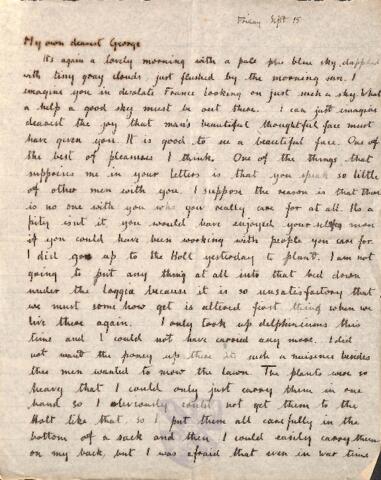 Friday Sept 15
My own dearest George
It's again a lovely morning with a pale blue sky dappled
with tiny gray clouds just flushed by the morning sun. I
imagine you in desolate France looking on just such a sky. What
a help a good sky must be out there. I can just imagine
dearest the joy that man's beautiful thoughtful face must
have given you. It is good to see a beautiful face. One of
the best of pleasures I think. One of the things that
surprises me in your letters is that you speak so little
of other men with you. I suppose the reason is that there
is no one with you who you really care for at all. It's a
pity isn't it you would have enjoyed your self more
if you could have been working with people you care for.
I did go up to the Holt yesterday to plant. I am not
going to put any thing at all into that bed down
under the loggia because it is so unsatisfactory that
we must some how get is altered first thing when we
live there again. I only took up delphiniums this
time and I could not have carried any more. I did
not want the poney up there such a nuisence besides
the men wanted to mow the lawn. The plants were so
heavy that I could only just carry them in one
hand so I obviously could not get them to the
Holt like that, so I put them all carefully in the
bottom of a sack and then I could easily carry them
on my back, but I was afraid that even in war time